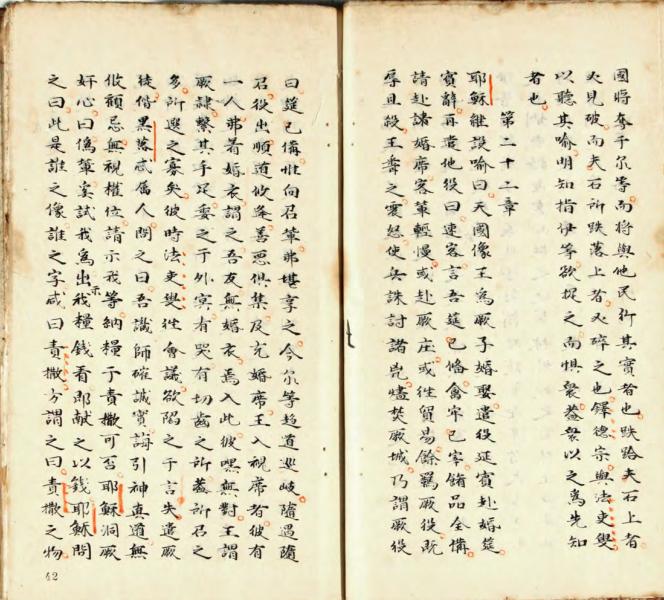 國將奪于尔等而將與他民行其實者也跌路夫石上者
必見破而夫石所跌落上者必碎之也鐸德宗與法吏叟
以聽其喻明知指伊等欲捉之而惧眾蓋眾以之為先知
者也
第二十二章
耶穌继設喻曰天國像王為厥子婚娶遣役延賓赴婚筵
賓辭再遣他役曰速客言吾筵已俻禽牢已宰餚品全備
請赴諸婚席客輩輕慢或赴厥庄或徃貿易餘羁厥役既
辱且殺王聞之震怒使兵誅討諸兇燼焚厥城乃謂厥役
曰筵已俻惟向召輩弗堪享之今尔等超道巡岐隨遇隨
召役出順道攸逢善惡俱集及充婚席王入視席者彼有
一人弗着婚衣謂之吾友無婚衣焉入此彼嘿無對王謂
厥隷繫其手足委之于外冥有哭有切齒之所盖所召之
多所選之寡矣彼時法吏叟徃會議欲陷之于言矢遣厥
徒偕黑落忒属人問之曰吾識師確誠實誨引神真道無
攸顧忌無視權位請示我等納糧于責撒可否耶穌洞厥
奸心曰偽輩奚試我為出示我糧錢看即献之以錢耶穌問
之曰此是誰之像誰之字咸曰責撒方謂之曰責撒之物
42